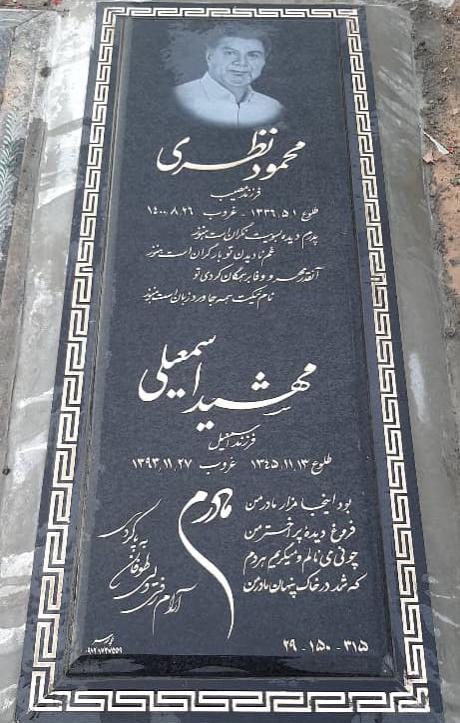 محمود نظری
فرزند مصیب
طلوع ۱۳۳۶.۵.۱ - غروب ۱۴۰۰.۸.۲۶
پدرم دیده بسویت نگران است هنوز
غم نادیدن تو بار گران است هنوز
آنقدر مهر و وفا بر همگان کردی تو
نام نیکت همه جا ورد زبان است هنوز
مهشید اسمعیلی
فرزند اسمعیل
طلوع ۱۳۴۵.۱۱.۱۳ غروب ۱۳۹۳.۱۱.۲۷
مادرم
بود اینجا مزار مادر من
فروغ دیدهٔ پر اختر من
چو نی می نالم و میگریم هر دم
که شد در خاک پنهان مادر من
آرام
۲۹ - ۱۵۰ - ۳۱۵